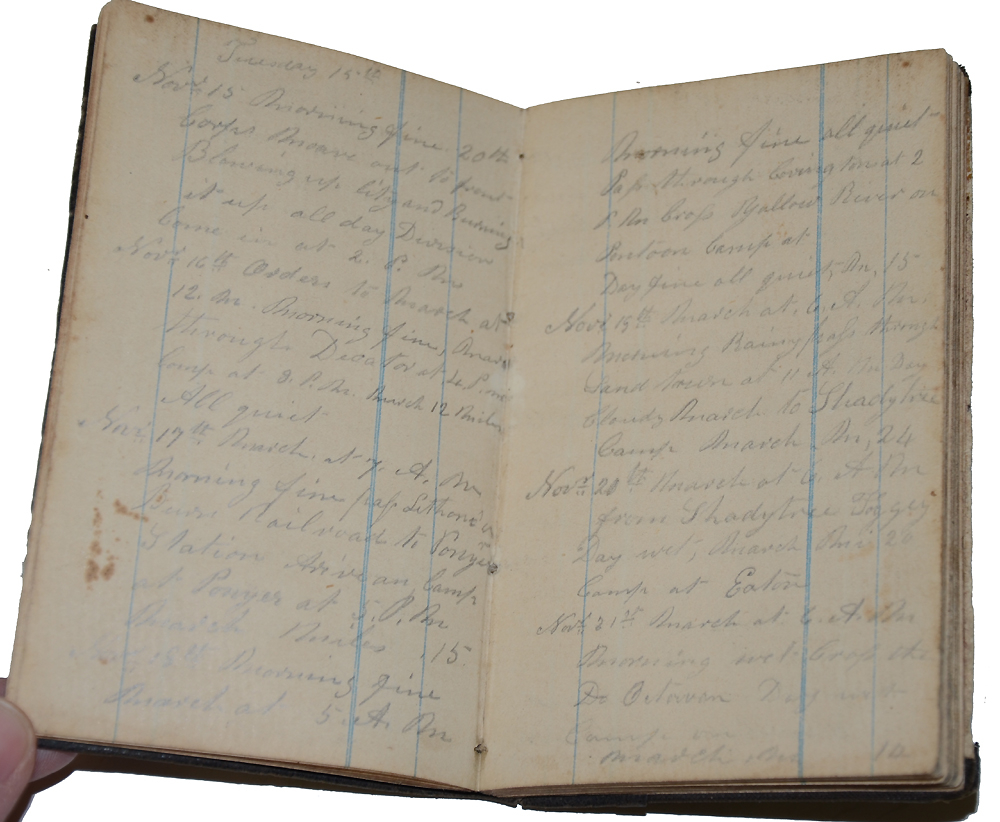 Tuesday 15th
Nov. 15 Morning fine. 20th
Corps Moave out to front
Blowing up City and Burning
it up all day Division
Come in at 2. P. M
Nov. 16th Orders to March at
12. M. Morning fine, March
through Decator at 4. P. m
Camp at 8. P. M. March 12 Miles
All quiet
Nov. 17th March. at 7. A. M
Morning fine pass Lithonia
Burn Railroad to Conyer
Station Arive an Camp
at Conyer at 5. P. M
March Miles 15
Nov. 18th Morning fine
March at 5. A. M
Morning fine all quiet
Pass through Covington at 2
P M Cross Yallow River on
Pontoon Camp at
Day fine all quiet, M, 15
Nov. 19th March at. 6. A. M.
Morning Rainy pass through
Sand town at 11 A. M Day
Cloudy March to Shadytree
Camp March M, 24
Nov. 20th March at 6 A M
from Shadytree Foggy
Day wet, March M 20
Camp at Eaton
Nov. 21st March at 6. A. M
Morning wet Cross the
Day
Camp
March M 10